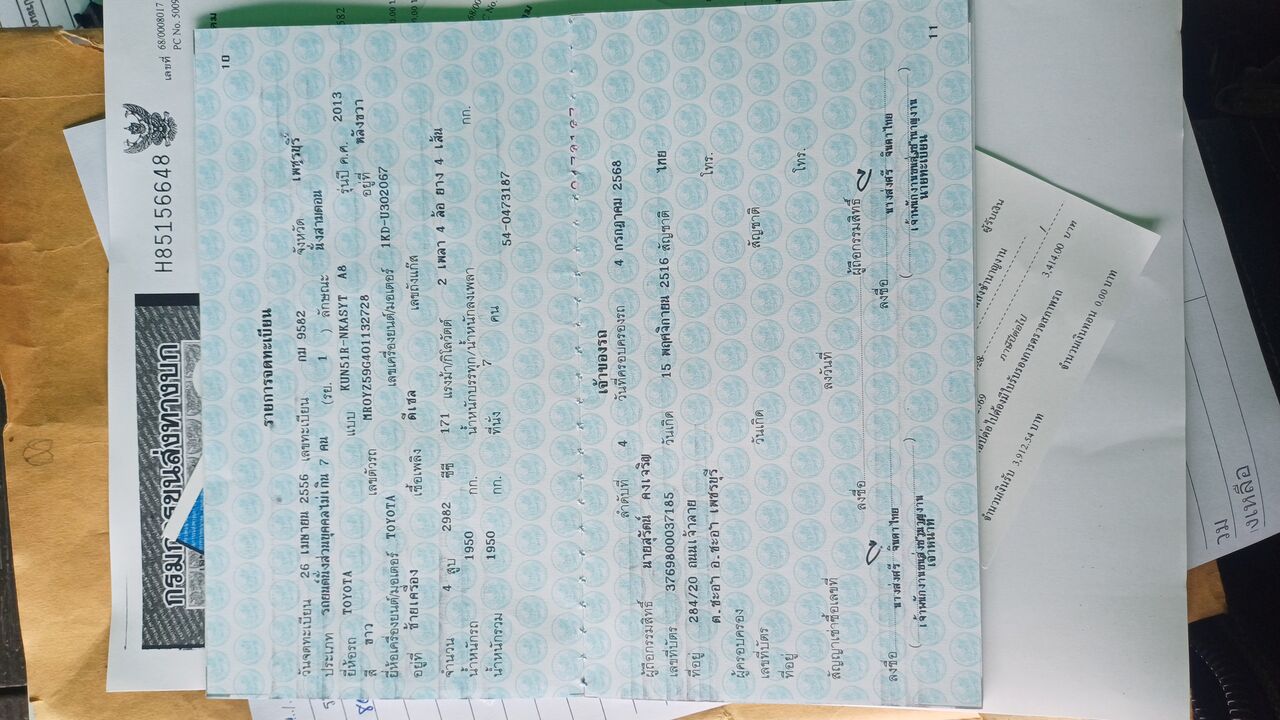 กรมการขนส่งทางบก
H85156648
เลขที่ 68/0008017
PC No. 5009
10
รายการจดทะเบียน
วันจดทะเบียน 26 เมษายน 2556 เลขทะเบียน กม 9582 จังหวัด เพชรบุรี
ประเภท รถยนต์นั่งส่วนบุคคลไม่เกิน 7 คน (รย. 1 ) ลักษณะ นั่งสามตอน
ยี่ห้อรถ TOYOTA แบบ KUN51R-NKASYT A8 รุ่นปี ค.ศ. 2013
สี ขาว เลขตัวรถ MROYZ59G401132728 อยู่ที่ หลังขวา
ยี่ห้อเครื่องยนต์/มอเตอร์ TOYOTA เลขเครื่องยนต์/มอเตอร์ 1KD-U302067
อยู่ที่ ซ้ายเครื่อง เชื้อเพลิง ดีเซล เลขถังแก๊ส
จำนวน 4 สูบ 2982 ซีซี 171 แรงม้า/กิโลวัตต์ 2 เพลา 4 ล้อ ยาง 4 เส้น
น้ำหนักรถ 1950 กก. น้ำหนักบรรทุก/น้ำหนักลงเพลา กก.
น้ำหนักรวม 1950 กก. ที่นั่ง 7 คน
54-0473187
11
เจ้าของรถ
ลำดับที่ 4 วันที่ครอบครองรถ 4 กรกฎาคม 2568
ผู้ถือกรรมสิทธิ์ นายสุรัตน์ คงเจริญ
เลขที่บัตร 3769800037185 วันเกิด 15 พฤศจิกายน 2516 สัญชาติ ไทย
ที่อยู่ 284/20 ถนนเจ้าลาย โทร.
ต.ชะอำ อ.ชะอำ เพชรบุรี
ผู้ครอบครอง
เลขที่บัตร วันเกิด สัญชาติ
ที่อยู่ โทร.
สัญญาเช่าซื้อเลขที่ ลงวันที่
ลงชื่อ ผู้ถือกรรมสิทธิ์
ลงชื่อ นางส่งศรี จินดาไทย ลงชื่อ นางส่งศรี จินดาไทย
(เจ้าพนักงานขนส่งชำนาญงาน) (เจ้าพนักงานขนส่งชำนาญงาน)
เจ้าหน้าที่ นายทะเบียน
ผู้รับเงิน
ภาษีปีต่อไป 3,414.00 บาท
ปีต่อไปต้องมีใบรับรองการตรวจสภาพรถ
จำนวนเงินรับ 3,912.54 บาท จำนวนเงินทอน 0.00 บาท
รวม